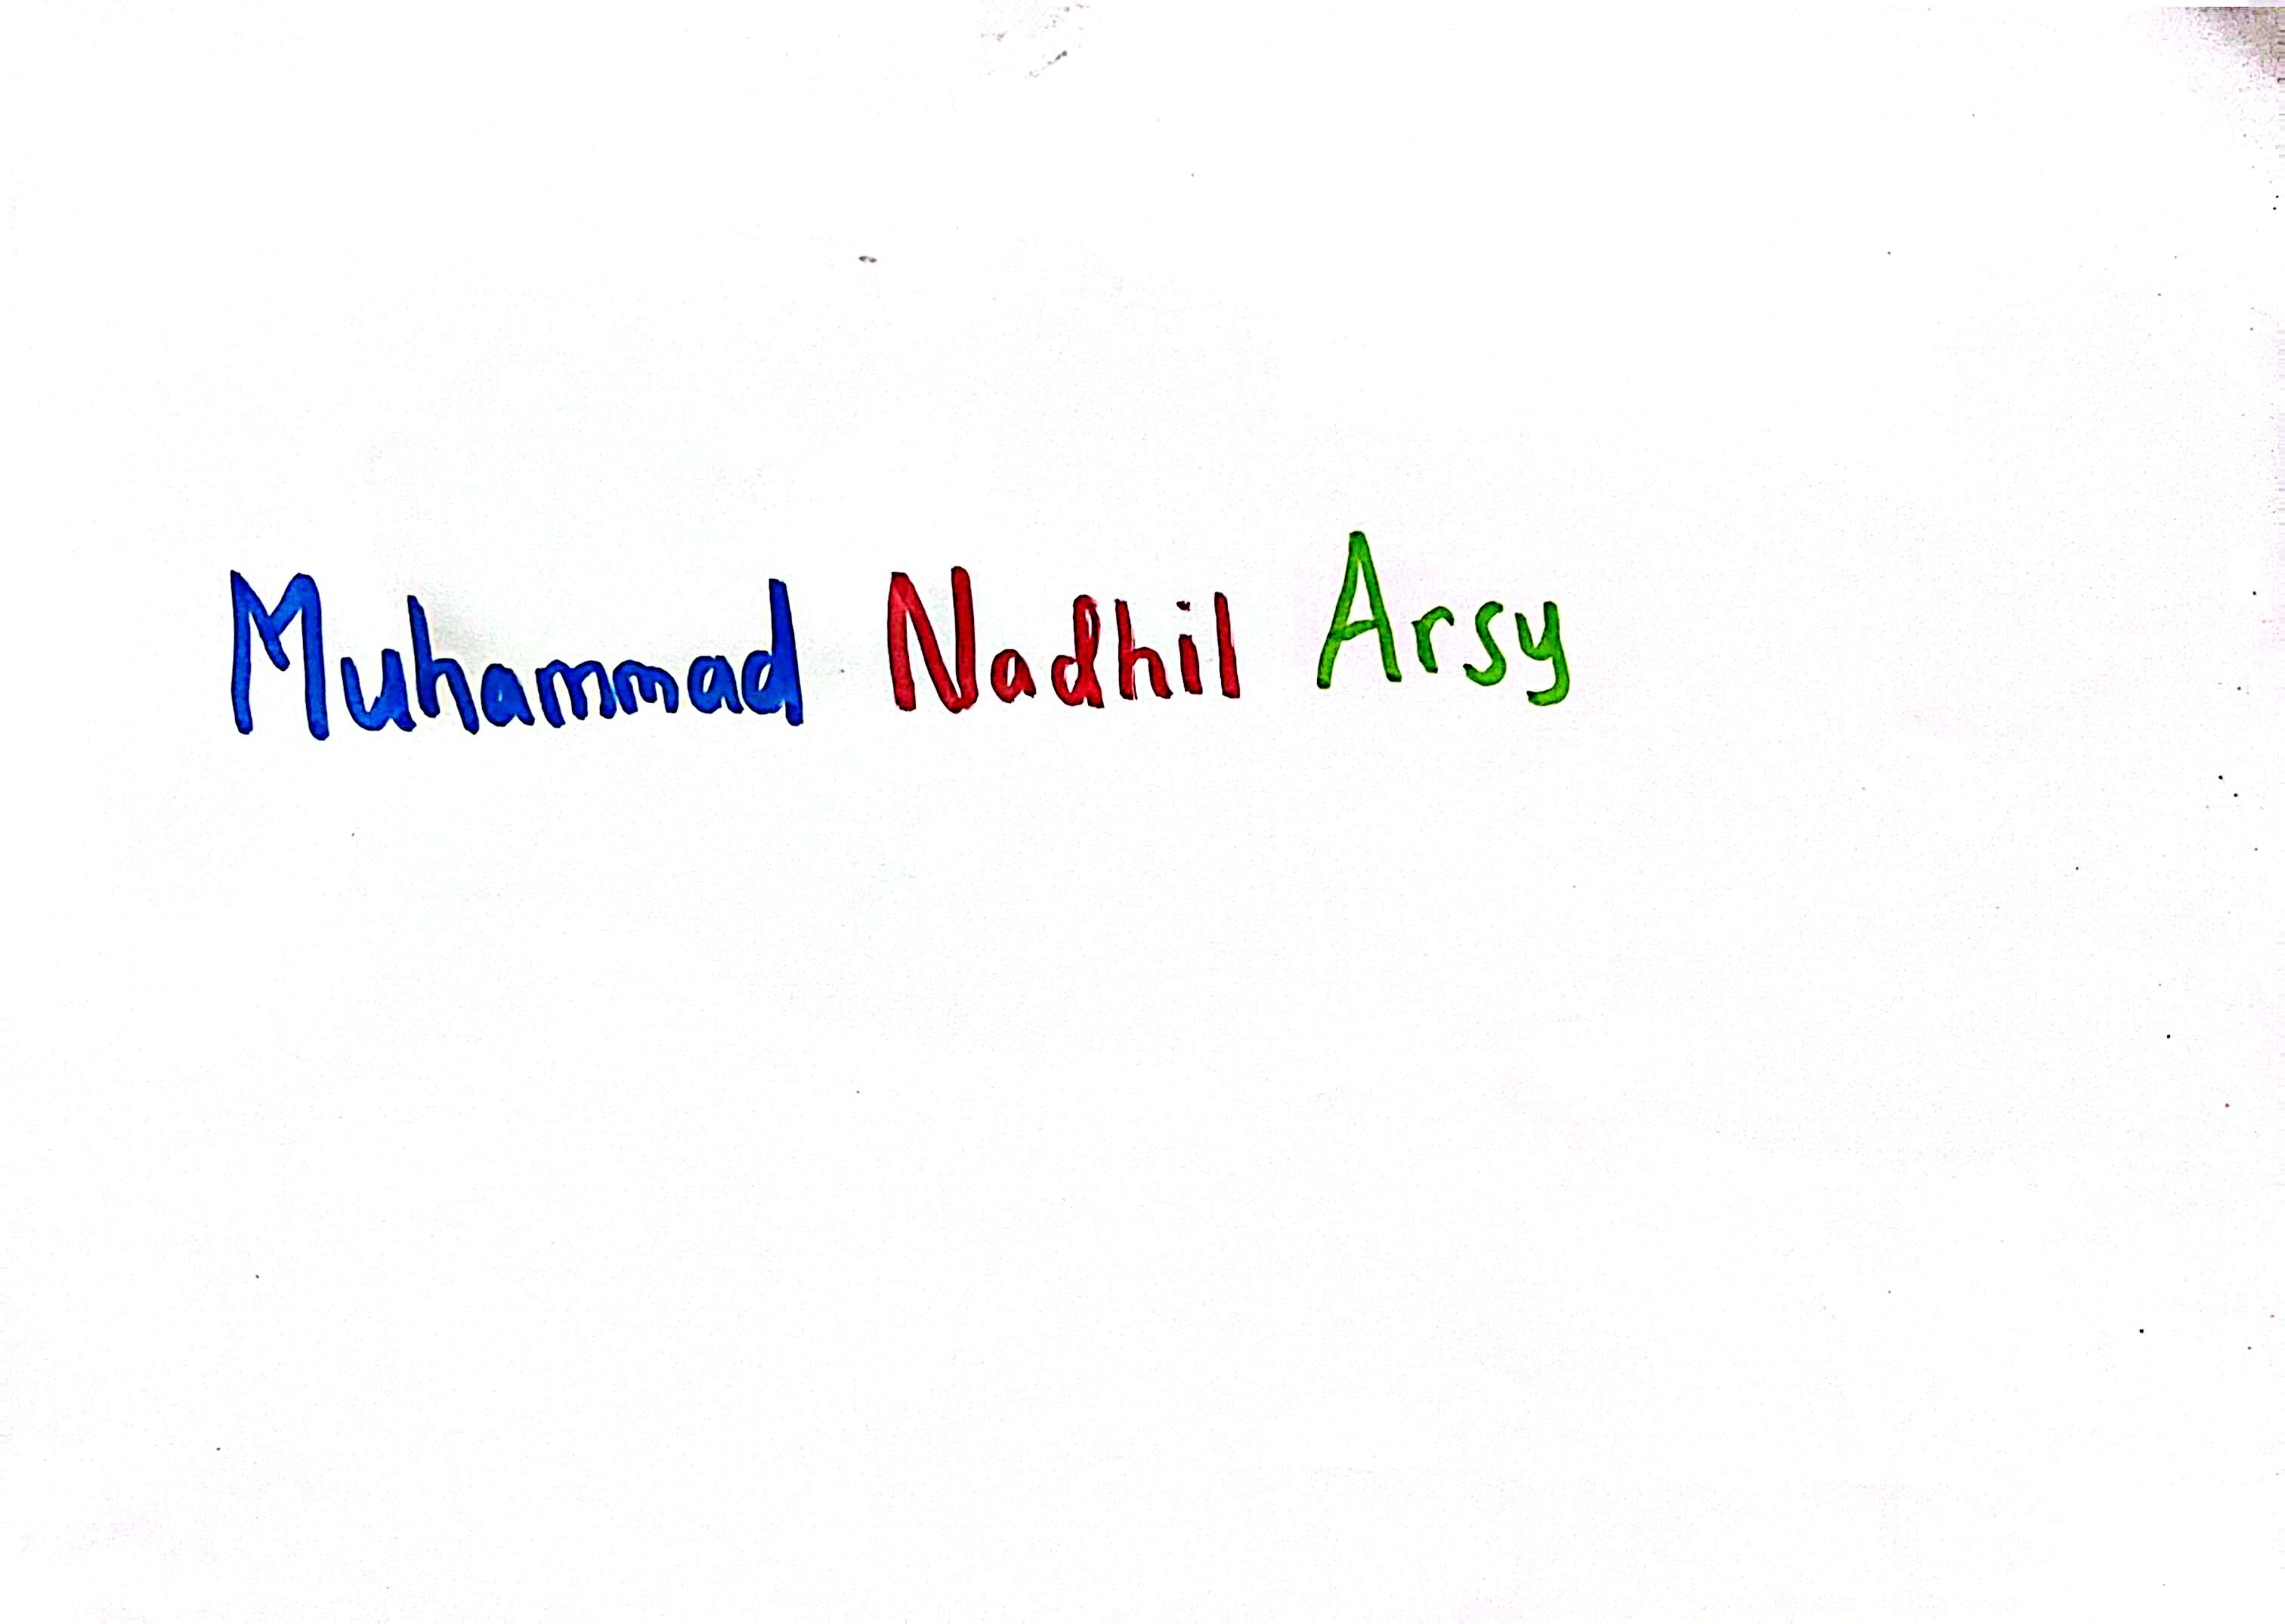 Muhammad Nadhil Arsy